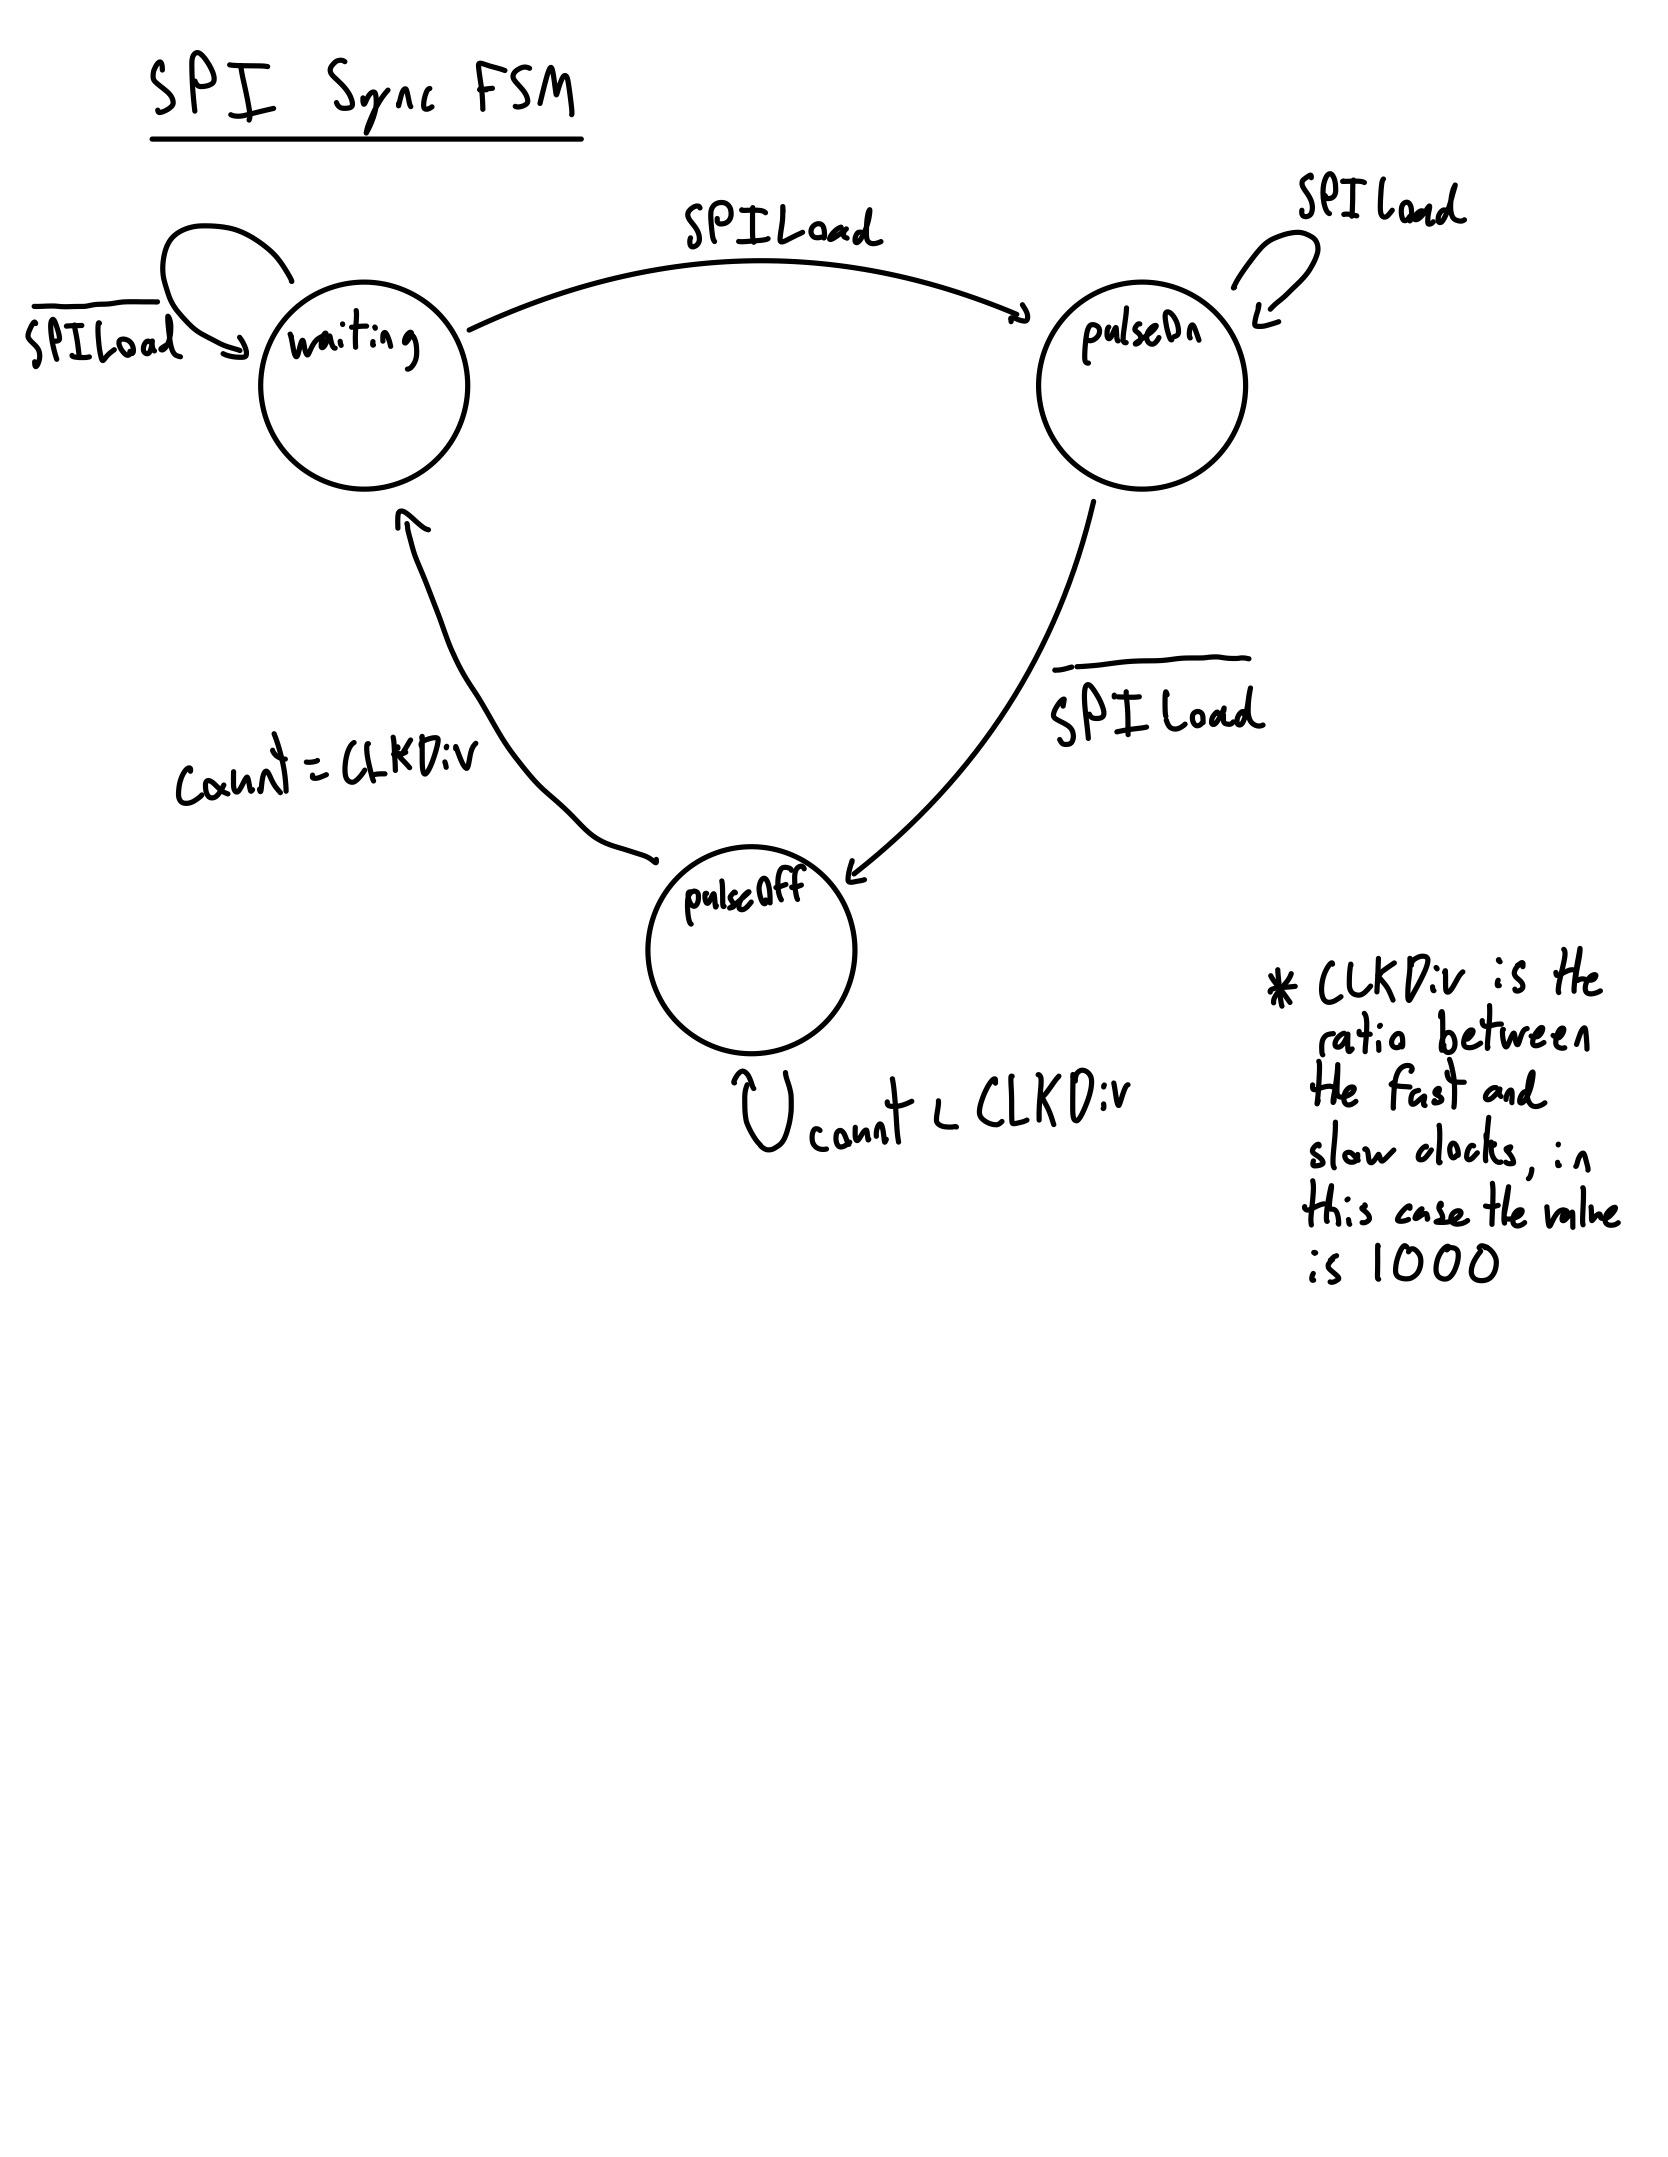 SPI Sync FSM
SPILoad
SPILoad
S̅P̅I̅L̅o̅a̅d̅
waiting
pulseOn
S̅P̅I̅L̅o̅a̅d̅
count = CLKDiv
pulseOff
count < CLKDiv
* CLKDiv is the
ratio between
the fast and
slow clocks, in
this case the value
is 1000